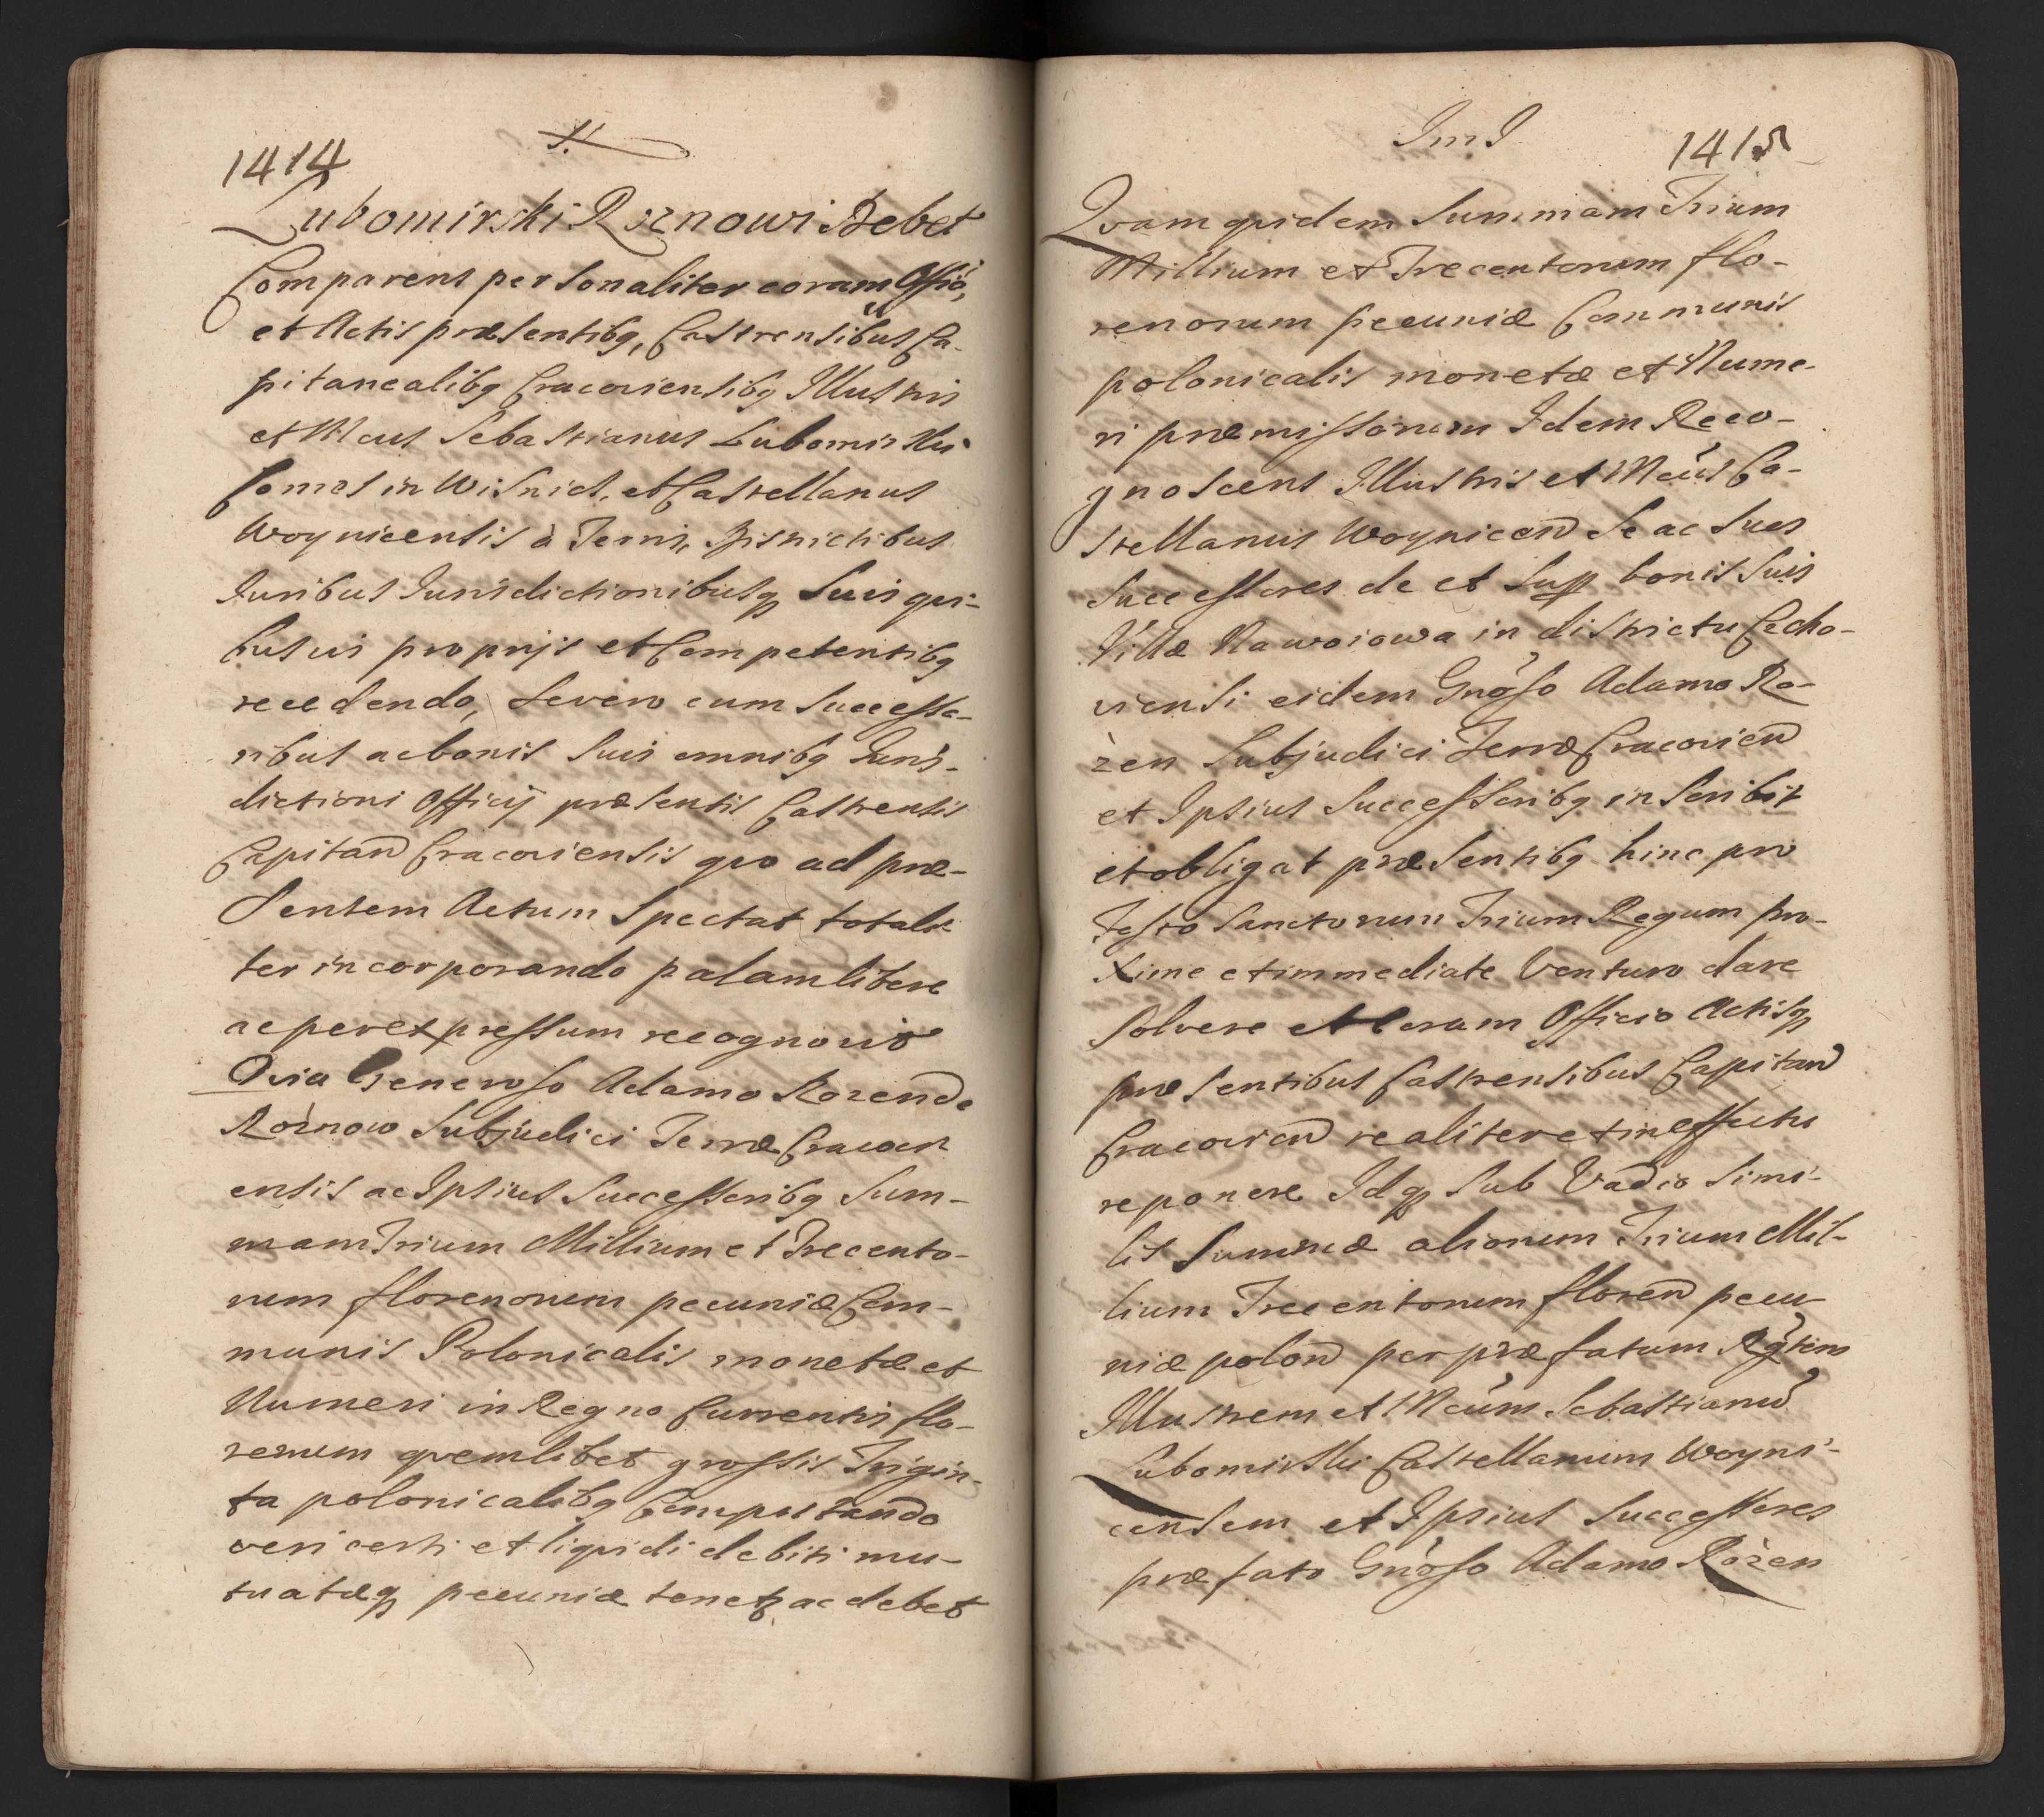 1414
Lubomirski Rznowi Debet
Comparens personaliter coram Offio,
et Actis præsentibq, Castrensibus Ca-
pitanealibq Cracoviensibq Illustris
et Mcus Sebastianus Lubomirski
Comes in Wisnicz, et Castellanus
Woynicensis à Terris, Districtibus
Iuribus Iurisdictionibusq Suis qui-
busvis proprijs et Competentibq
recedendo, se vero cum Successo-
ribus ac bonis Suis omnibq Juris-
dictioni Officij præsentis Castrensis
Capitan Cracoviensis quo ad præ-
Sentem Actum Spectat totali-
ter incorporando palam libere
ac per expressum recognovit
Quia Generoso Adamo Rozen de
Rożnow Subjudici Terræ Cracovi
ensis ac Ipsius Successoribq Sum-
mam Trium Millium et Trecento-
rum florenorum pecuniæ Com-
munis Polonicalis monetæ et
Numeri in Regno Currentis flo-
renum quemlibet grossis Trigin-
ta polonicalibq Computando
veri certi et liquidi debiti mu-
tuatæq pecuniæ tenetq ac debet
1415
Qvam quidem Summam Trium
Millium et Trecentorum flo-
renorum pecuniæ Communis
polonicalis monetæ et Nume-
ri præmissorum Idem Reco-
gnoscens Illustris et Mcus Ca-
stellanus Woynicen Se ac Suos
Successores de et Sup bonis Suis
Villæ Nawoiowa in districtu Czcho-
viensi eidem Gnoso Adamo Ro-
żen Subjudici Terræ Cracovien
et Ipsius Successoribq inscribit
et obligat præsentibq hinc pro
Festo Sanctorum Trium Regum pro-
xime et immediate Venturo dare
Solvere et coram Officio Actisq
præsentibus Castrensibus Capitan
Cracovien realiter et in effectu
reponere Idq Sub Vadio Simi-
lis Summæ aliorum Trium Mil-
lium Trecentorum floren pecu-
niæ polon per præfatum Rgtem
Illustrem et Mcum Sebastianu
Lubomirski Castellanum Woyni-
censem et Ipsius Successores
præfato Gnoso Adamo Rożen